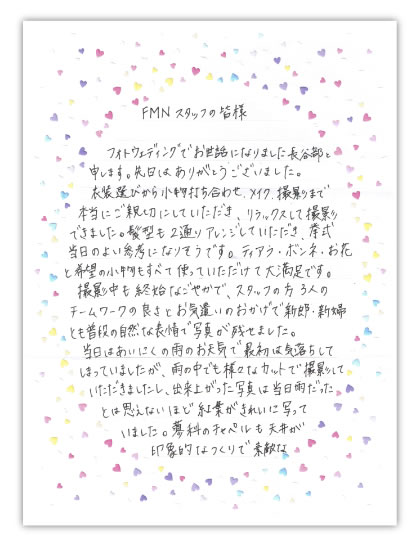 FMN スタッフの皆様
フォトウェディングでお世話になりました長谷部と
申します。先日はありがとうございました。
衣装選びから小物打ち合わせ、メイク、撮影まで
本当にご親切にしていただき、リラックスして撮影が
できました。髪型も2通りアレンジしていただき、挙式
当日のよい参考になりそうです。ティアラ・ボンネ・お花
と希望の小物もすべて使っていただけて大満足です。
撮影中も終始なごやかで、スタッフの方3人の
チームワークの良さとお気遣いのおかげで新郎・新婦
とも普段の自然な表情で写真が残せました。
当日はあいにくの雨のお天気で最初は気落ちして
しまっていましたが、雨の中でも様々なカットで撮影して
いただきましたし、出来上がった写真は当日雨だった
とは思えないほど紅葉がきれいに写って
いました。蓼科のチャペルも天井が
印象的なつくりで素敵な